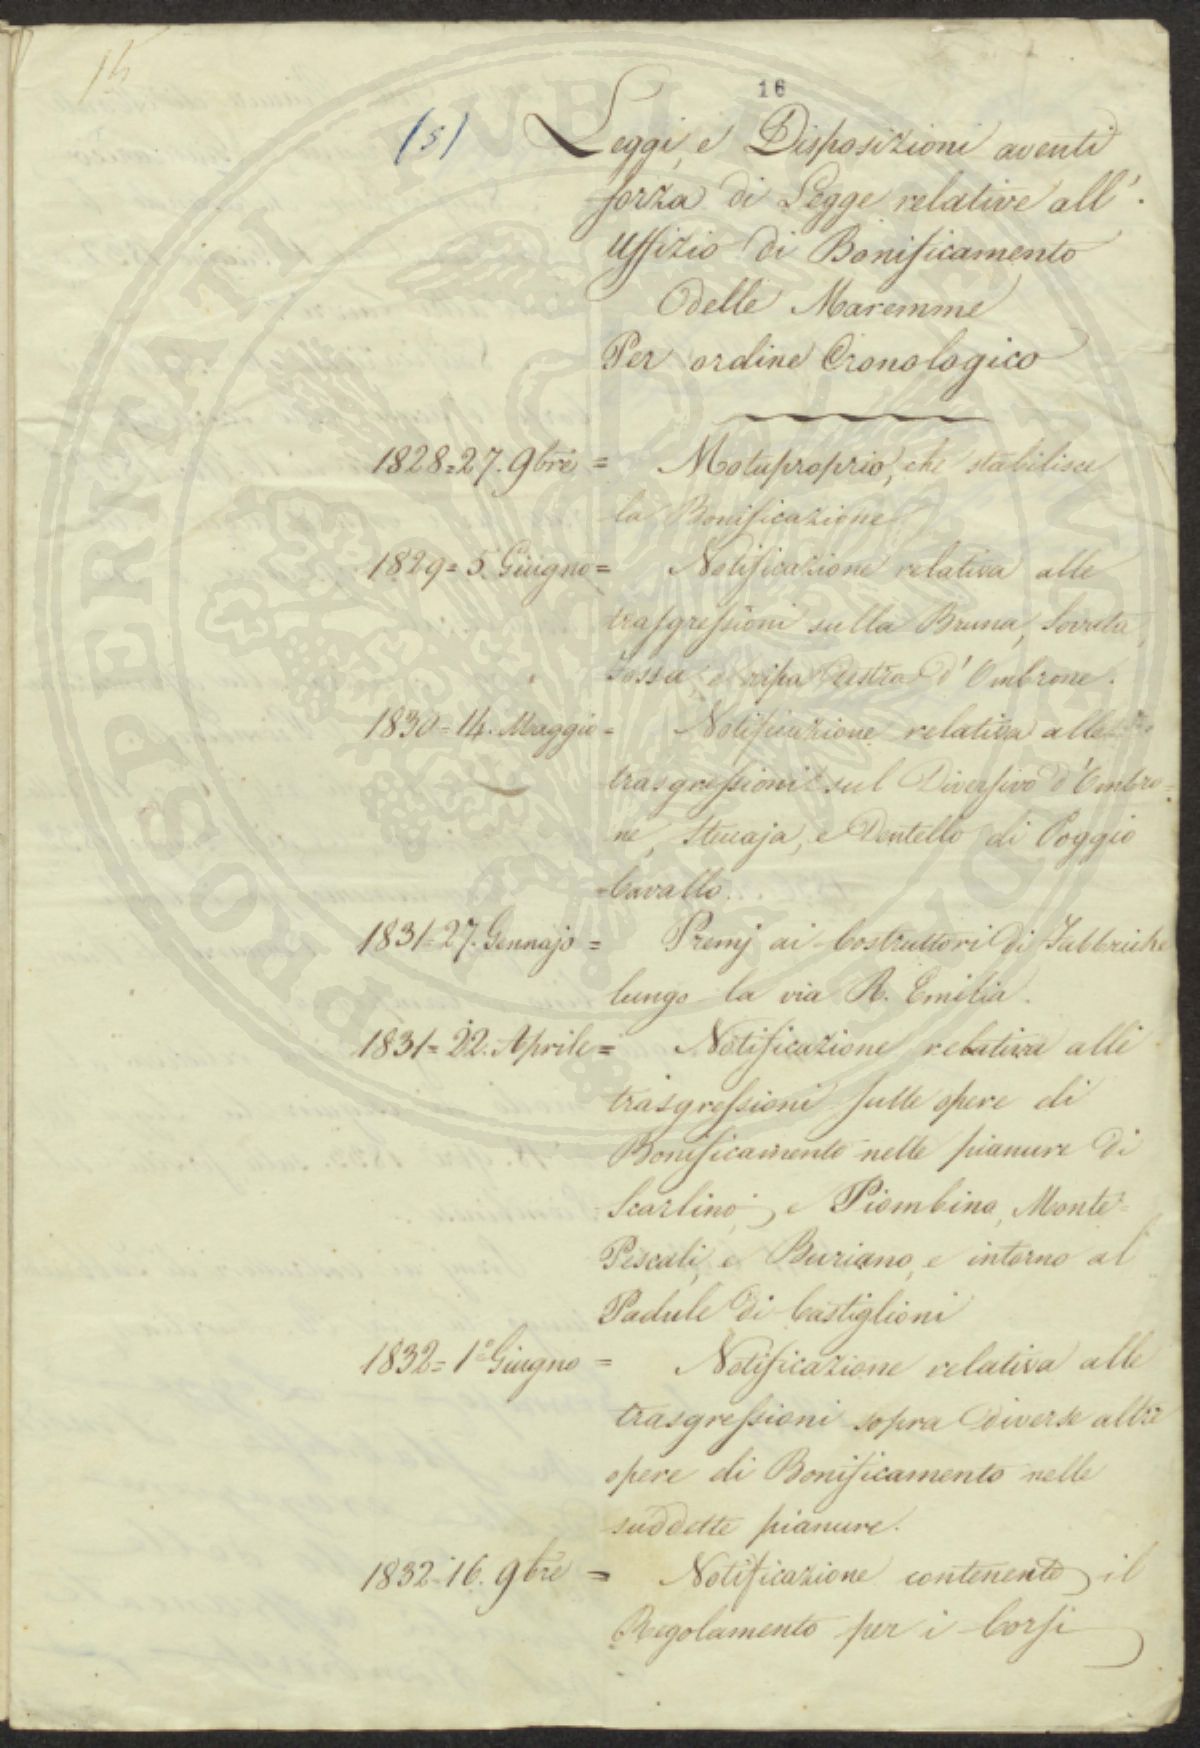 15
16
(5)
Leggi, e Disposizioni aventi
forza di Legge relative all'
Uffizio di Bonificamento
delle Maremme
Per ordine Cronologico
1828=27. 9bre = Motuproprio, che stabilisce
la Bonificazione
1829=5. Giugno= Notificazione relativa alle
trasgressioni sulla Bruna, Sovata,
Fossa, e ripa destra d'Ombrone.
1830=14. Maggio= Notificazione relativa alle
trasgressioni sul Diversivo d'Ombro=
ne, Steccaja, e Dentello di Poggio
Cavallo.
1831=27. Gennajo = Premj ai Costruttori di Fabbriche
lungo la via R. Emilia.
1831=22. Aprile= Notificazione relativa alle
trasgressioni sulle opere di
Bonificamento nelle pianure di
Scarlino, e Piombino, Monte=
Pescali, e Buriano, e intorno al
Padule di Castiglioni
1832=1° Giugno = Notificazione relativa alle
trasgressioni sopra diverse altre
opere di Bonificamento nelle
suddette pianure.
1832=16. 9bre = Notificazione contenente il
Regolamento per i Corsi
PROSPERITATI